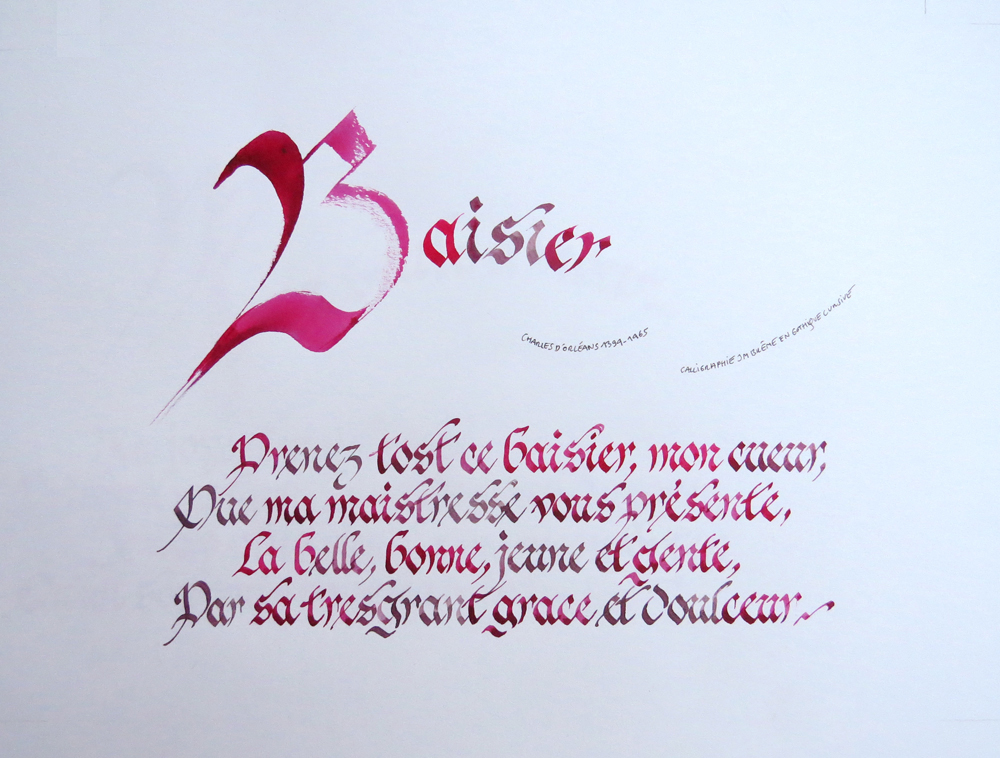 Baisier
CHARLES D'ORLÉANS 1394-1465
CALLIGRAPHIE JM BRÊME EN GOTHIQUE CURSIVE
Prenez tost ce baisier, mon cueur,
Que ma maistresse vous présente,
La belle, bonne, jeune et gente,
Par sa tresgrant grace et doulceur